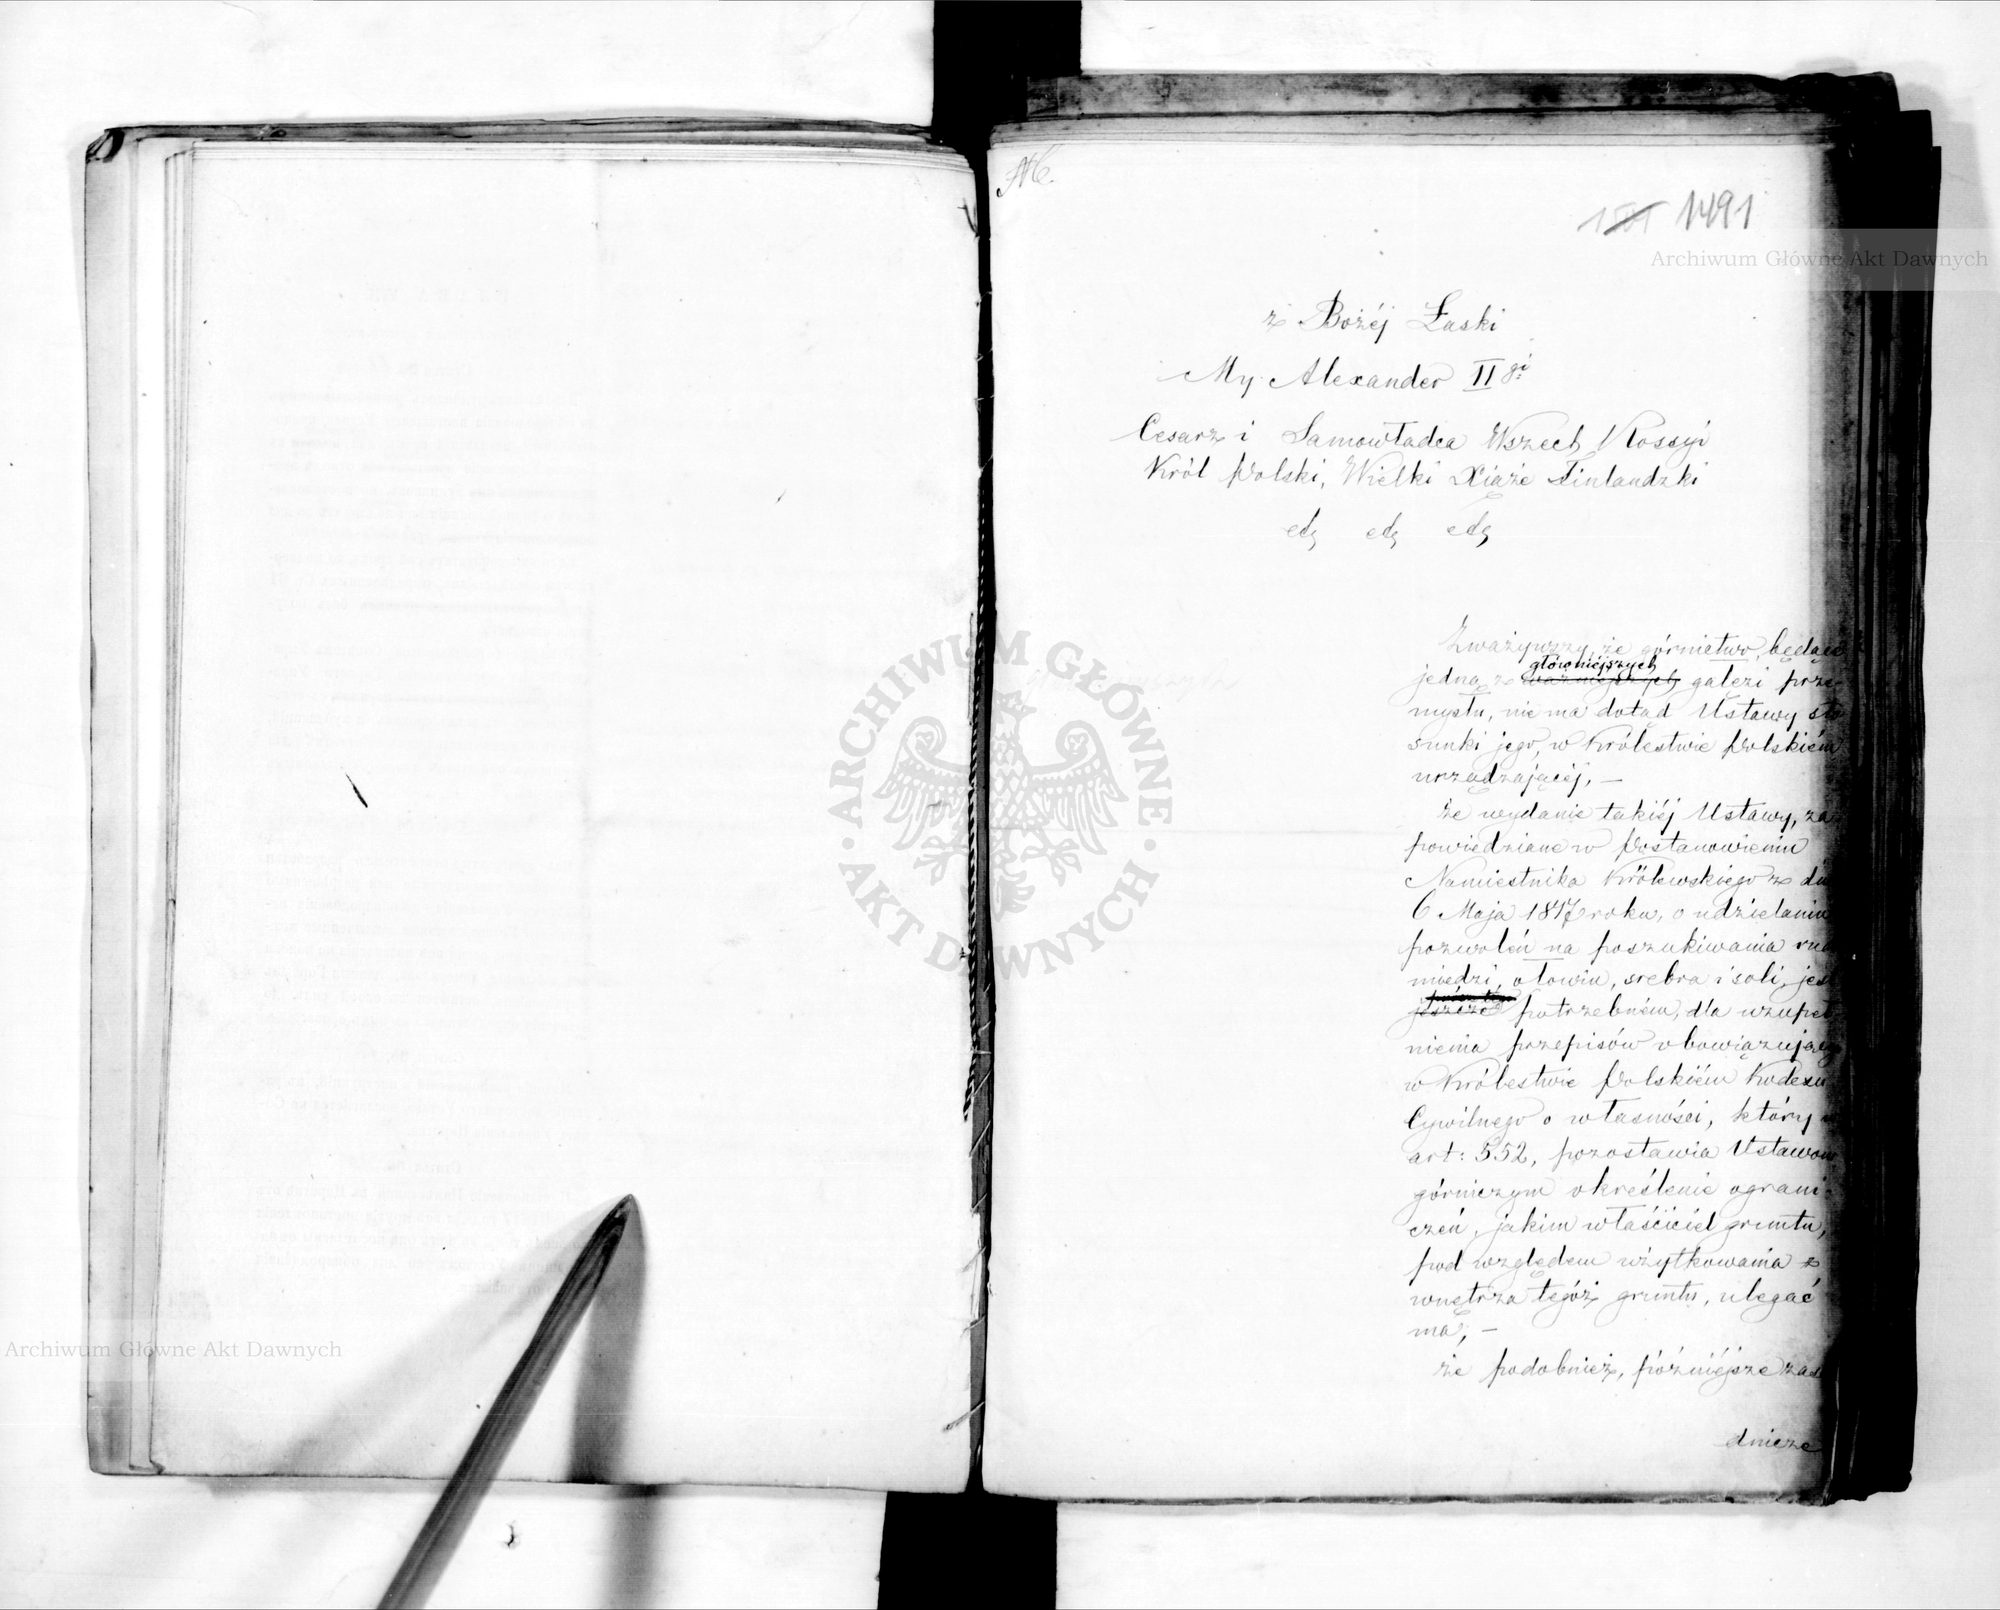 1491
Archiwum Główne Akt Dawnych
z Bożéj Łaski
My Alexander II gi
Cesarz i Samowładca Wszech Rossyi
Król Polski, Wielki Xiąże Finlandzki
etc etc etc
Zważywszy, że górnictwo, będąc
główniejszych
jedną z ważniejszych gałęzi prze-
mysłu, nie ma dotąd Ustawy sto
sunki jego, w Królestwie Polskiém
urządzającéj, —
że wydanie takiéj Ustawy, za
powiedziane w Postanowieniu
Namiestnika Królewskiego z dn
6 Maja 1817 roku, o udzielaniu
pozwoleń na poszukiwania rud
miedzi, ołowiu, srebra i soli, jest
jeszcze potrzebném, dla uzupeł-
nienia przepisów obowiązującego
w Królestwie Polskiém Kodexu
Cywilnego o własności, który w
art: 552, pozostawia Ustawom
górniczym określenie ograni-
czeń, jakim właściciel gruntu,
pod względem użytkowania z
wnętrza tegóż gruntu, ulegać
ma, —
że podobnież, późniejsze zas
dnicze
ARCHIWUM GŁÓWNE AKT DAWNYCH
Archiwum Główne Akt Dawnych